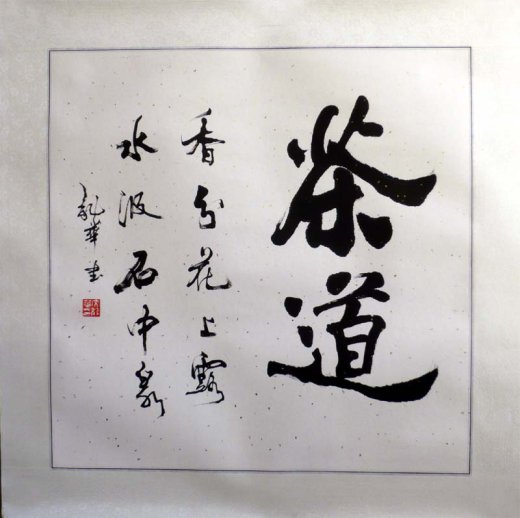 茶道
香分花上露
水汲石中泉
龍華書